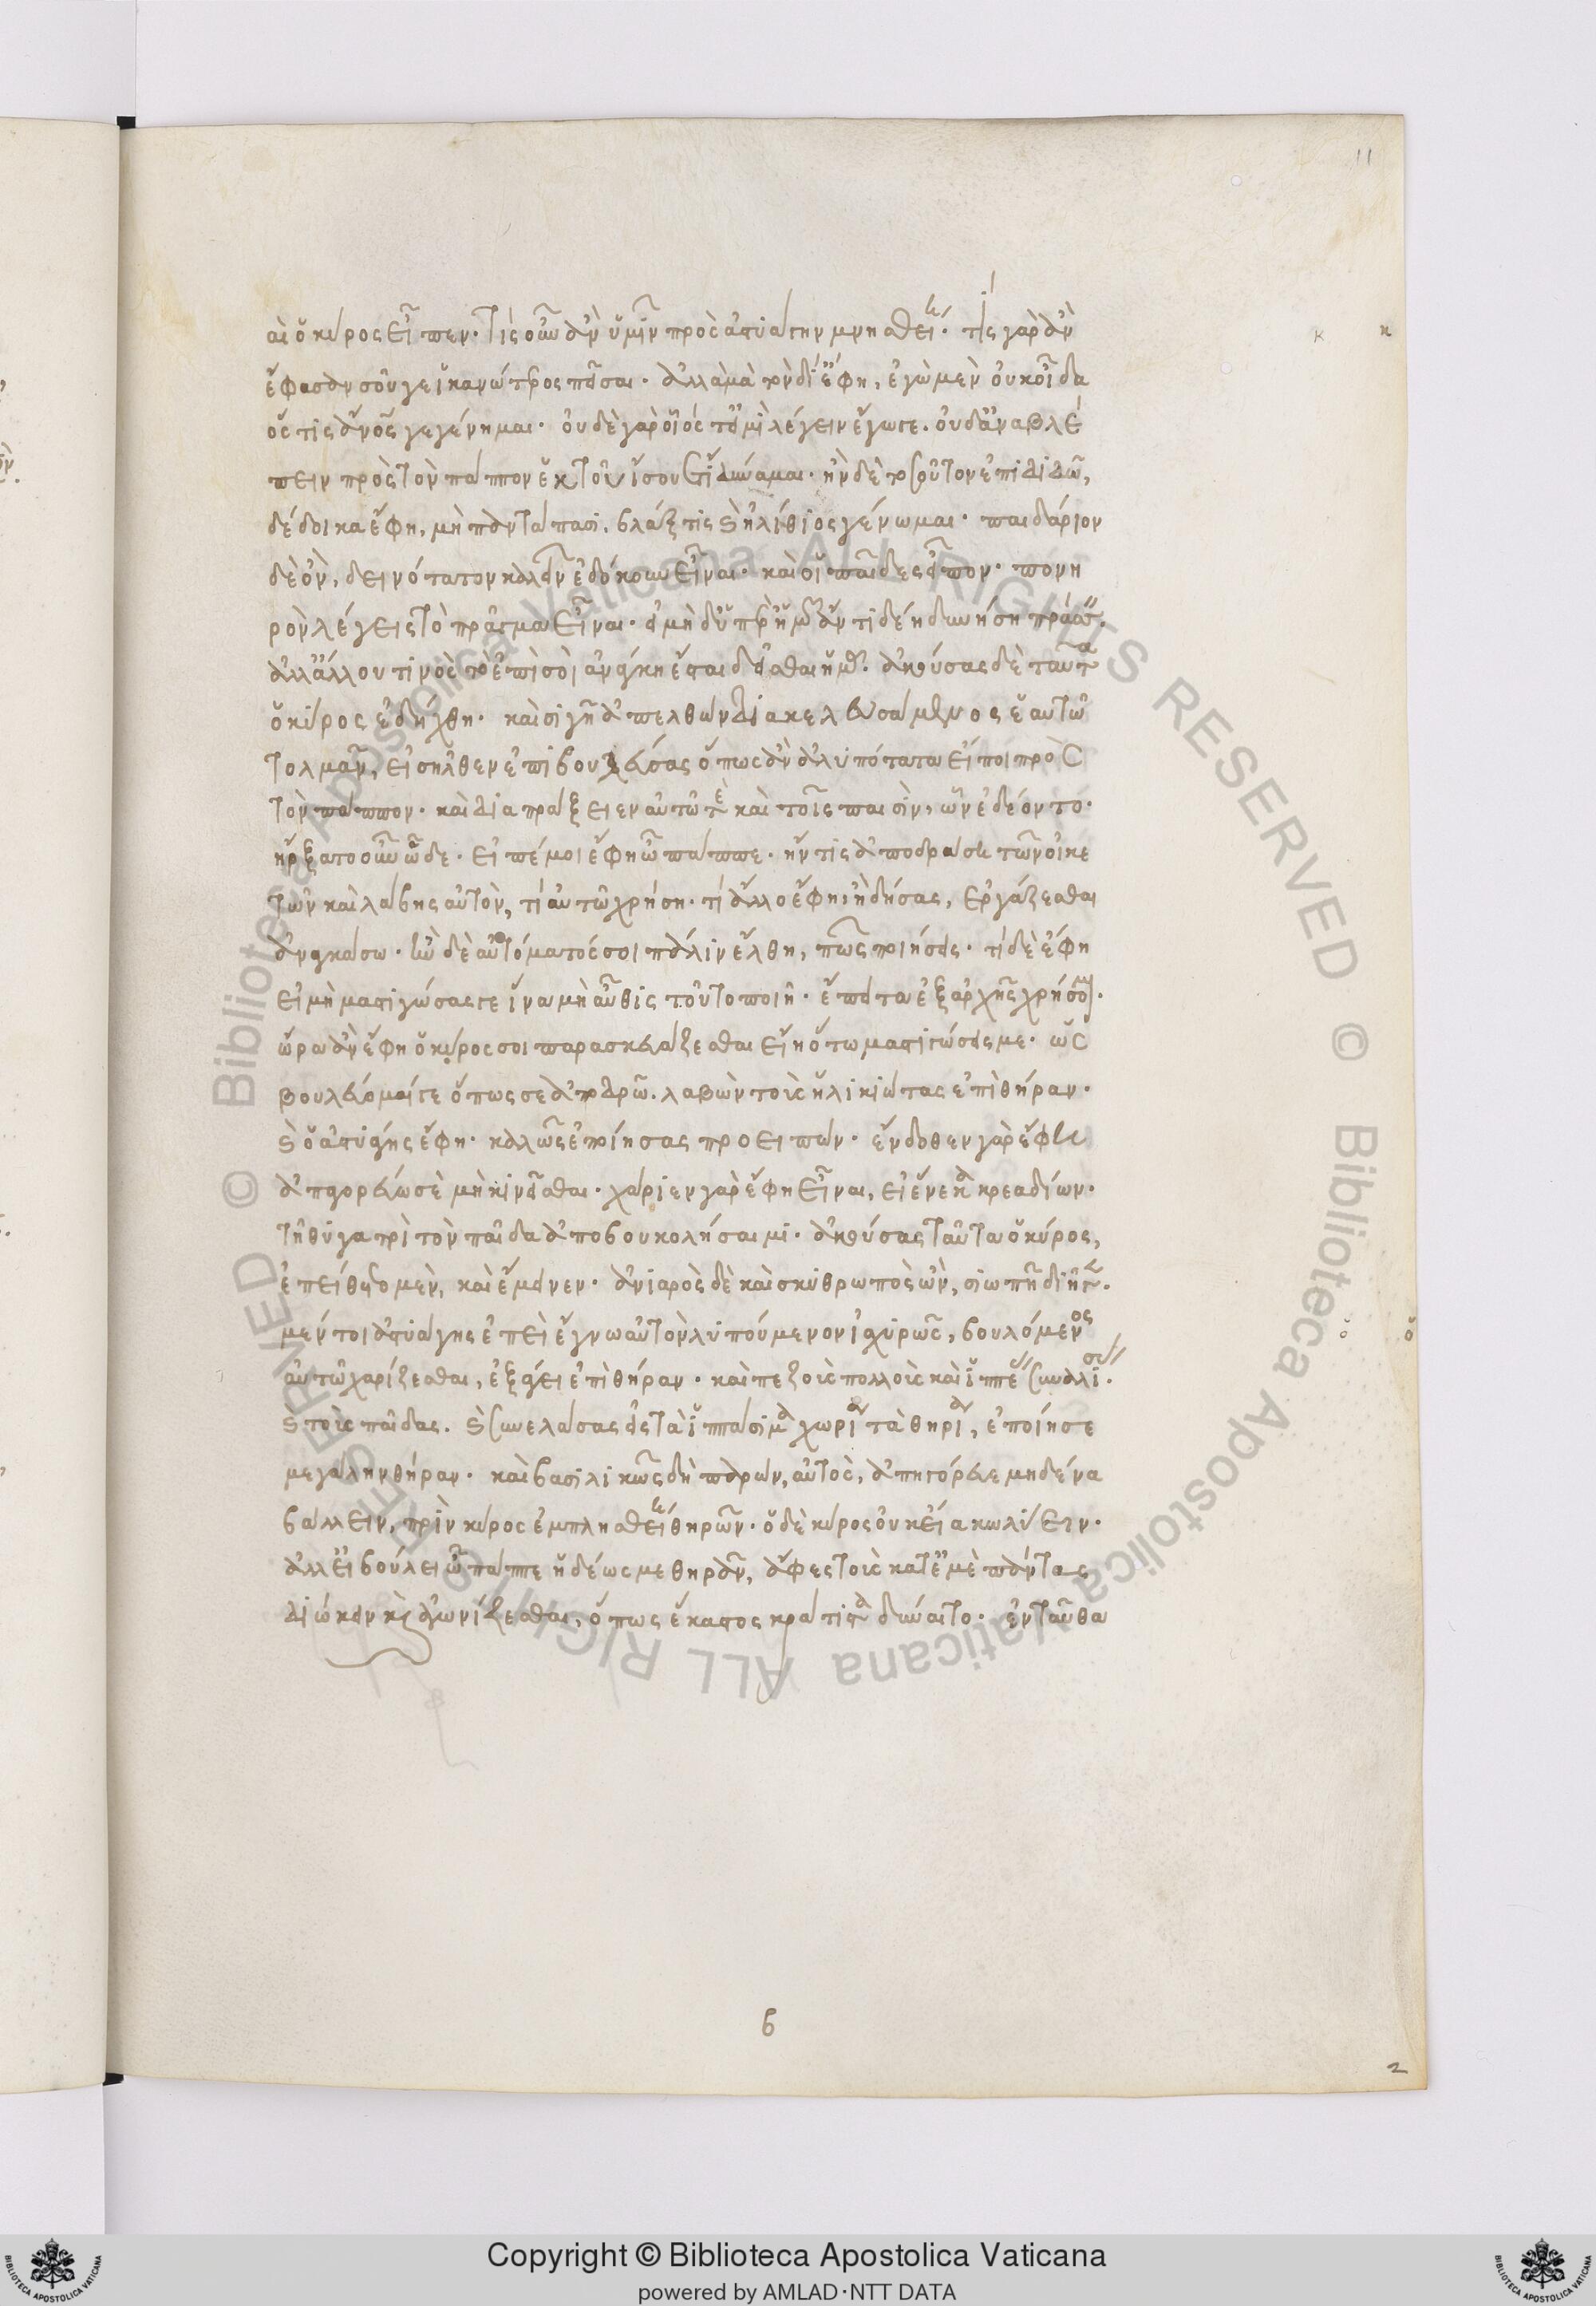 11
αι ὁ κῦρος εἶπεν· τίς οὖν ἂν ὑμῖν πρὸς ἀστυάγην μνησθείη· τίς γὰρ ἂν
κ κ
ἔφασαν σοῦ γε ἱκανώτερος πεῖσαι· ἀλλὰ μὰ τὸν δί ἔφη, ἐγὼ μὲν οὐκ οἶδα
ὅς τις ἄνος γεγένημαι· οὐδὲ γὰρ οἷός τ' εἰμὶ λέγειν ἔγωγε. οὐδ' ἀναβλέ
πειν πρὸς τὸν πάππον ἐκ τοῦ ἴσου ἔτι δύναμαι· ἢν δὲ τοσοῦτον ἐπιδιδῶ,
δέδοικα ἔφη, μὴ παντάπασι. βλάξ τις καὶ ἠλίθιος γένωμαι· παιδάριον
δὲ ὂν, δεινότατον λαλεῖν ἐδόκουν εἶναι· καὶ οἱ παῖδες εἶπον· πονη
ρὸν λέγεις τὸ πρᾶγμα εἶναι· εἰ μὴ δ' ὑπὲρ ἡμῶν ἄν τι δέη δυνήση πράττειν.
ἀλλ' ἄλλου τινὸς τὸ ἐπὶ σοὶ ἀνάγκη ἔσται δεῖσθαι ἡμᾶς. ἀκούσας δὲ ταῦτα
ὁ κῦρος ἐδήχθη· καὶ σιγῆ ἀπελθὼν διακελευσάμενος ἑαυτῶ
τολμᾶν, εἰσῆλθεν ἐπιβουλεύσας ὅπως ἂν ἀλυπότατα εἴποι πρὸς
τὸν πάππον· καὶ διαπράξειεν αὐτῶ τε καὶ τοῖς παισὶν, ὧν ἐδέοντο·
ἤρξατο οὖν ὧδε· εἰπέ μοι ἔφη ὦ πάππε· ἤν τις ἀποδράση τῶν οἰκε
τῶν καὶ λάβης αὐτὸν, τί αὐτῶ χρήση· τί ἄλλο ἔφη, ἢ δήσας, ἐργάζεσθαι
ἀναγκάσω· ἢν δὲ αὐτόματός σοι πάλιν ἔλθη, πῶς ποιήσεις· τί δὲ ἔφη
εἰ μὴ μαστιγώσας γε ἵνα μὴ αὖθις τοῦτο ποιῆ· ἔπειτα ἐξ ἀρχῆς χρήσομαι.
ὥρα ἂν ἔφη ὁ κῦρος σοι παρασκευάζεσθαι εἴη ὅτω μαστιγώσεις με· ὡς
βουλεύομαί γε ὅπως σε ἀποδρῶ. λαβὼν τοὺς ἡλικιώτας ἐπὶ θήραν·
καὶ ὁ ἀστυάγης ἔφη· καλῶς ἐποίησας προειπών· ἔνδοθεν γὰρ ἔφη
ἀπαγορεύω σὲ μὴ κινεῖσθαι· χάριεν γὰρ ἔφη εἶναι, εἰ ἕνεκα κρεαδίων·
τῆ θυγατρὶ τὸν παῖδα ἀποβουκολήσαιμι· ἀκούσας ταῦτα ὁ κύρος,
ἐπείθετο μὲν, καὶ ἔμεινεν· ἀνιαρὸς δὲ καὶ σκυθρωπὸς ὢν, σιωπῆ διῆγε.
μέντοι ἀστυάγης ἐπεὶ ἔγνω αὐτὸν λυπούμενον ἰσχυρῶς, βουλόμενος
ὁ ὁ
αὐτῶ χαρίζεσθαι, ἐξάγει ἐπὶ θήραν· καὶ πεζοὺς πολλοὺς καὶ ἱππέας συναλίσας·
καὶ τοὺς παῖδας. καὶ συνελάσας εἰς τὰ ἱππάσιμα χωρία τὰ θηρία, ἐποίησε
μεγάλην θήραν· καὶ βασιλικῶς δὴ παρὼν, αὐτὸς, ἀπηγόρευε μηδένα
βάλλειν, πρὶν κῦρος ἐμπλησθείη θηρῶν· ὁ δὲ κῦρος οὐκ εἴα κωλύειν·
ἀλλ' εἰ βούλει ὦ πάππε ἡδέως με θηρᾶν, ἄφες τοὺς κατ' ἐμὲ πάντας
διώκειν καὶ ἀγωνίζεσθαι, ὅπως ἕκαστος κράτιστα δύναιτο· ἐνταῦθα
6
2
© Biblioteca Apostolica Vaticana ALL RIGHTS RESERVED © Biblioteca Apostolica Vaticana ALL RIGHTS RESERVED
Copyright © Biblioteca Apostolica Vaticana
powered by AMLAD·NTT DATA
BIBLIOTECA APOSTOLICA VATICANA
BIBLIOTECA APOSTOLICA VATICANA